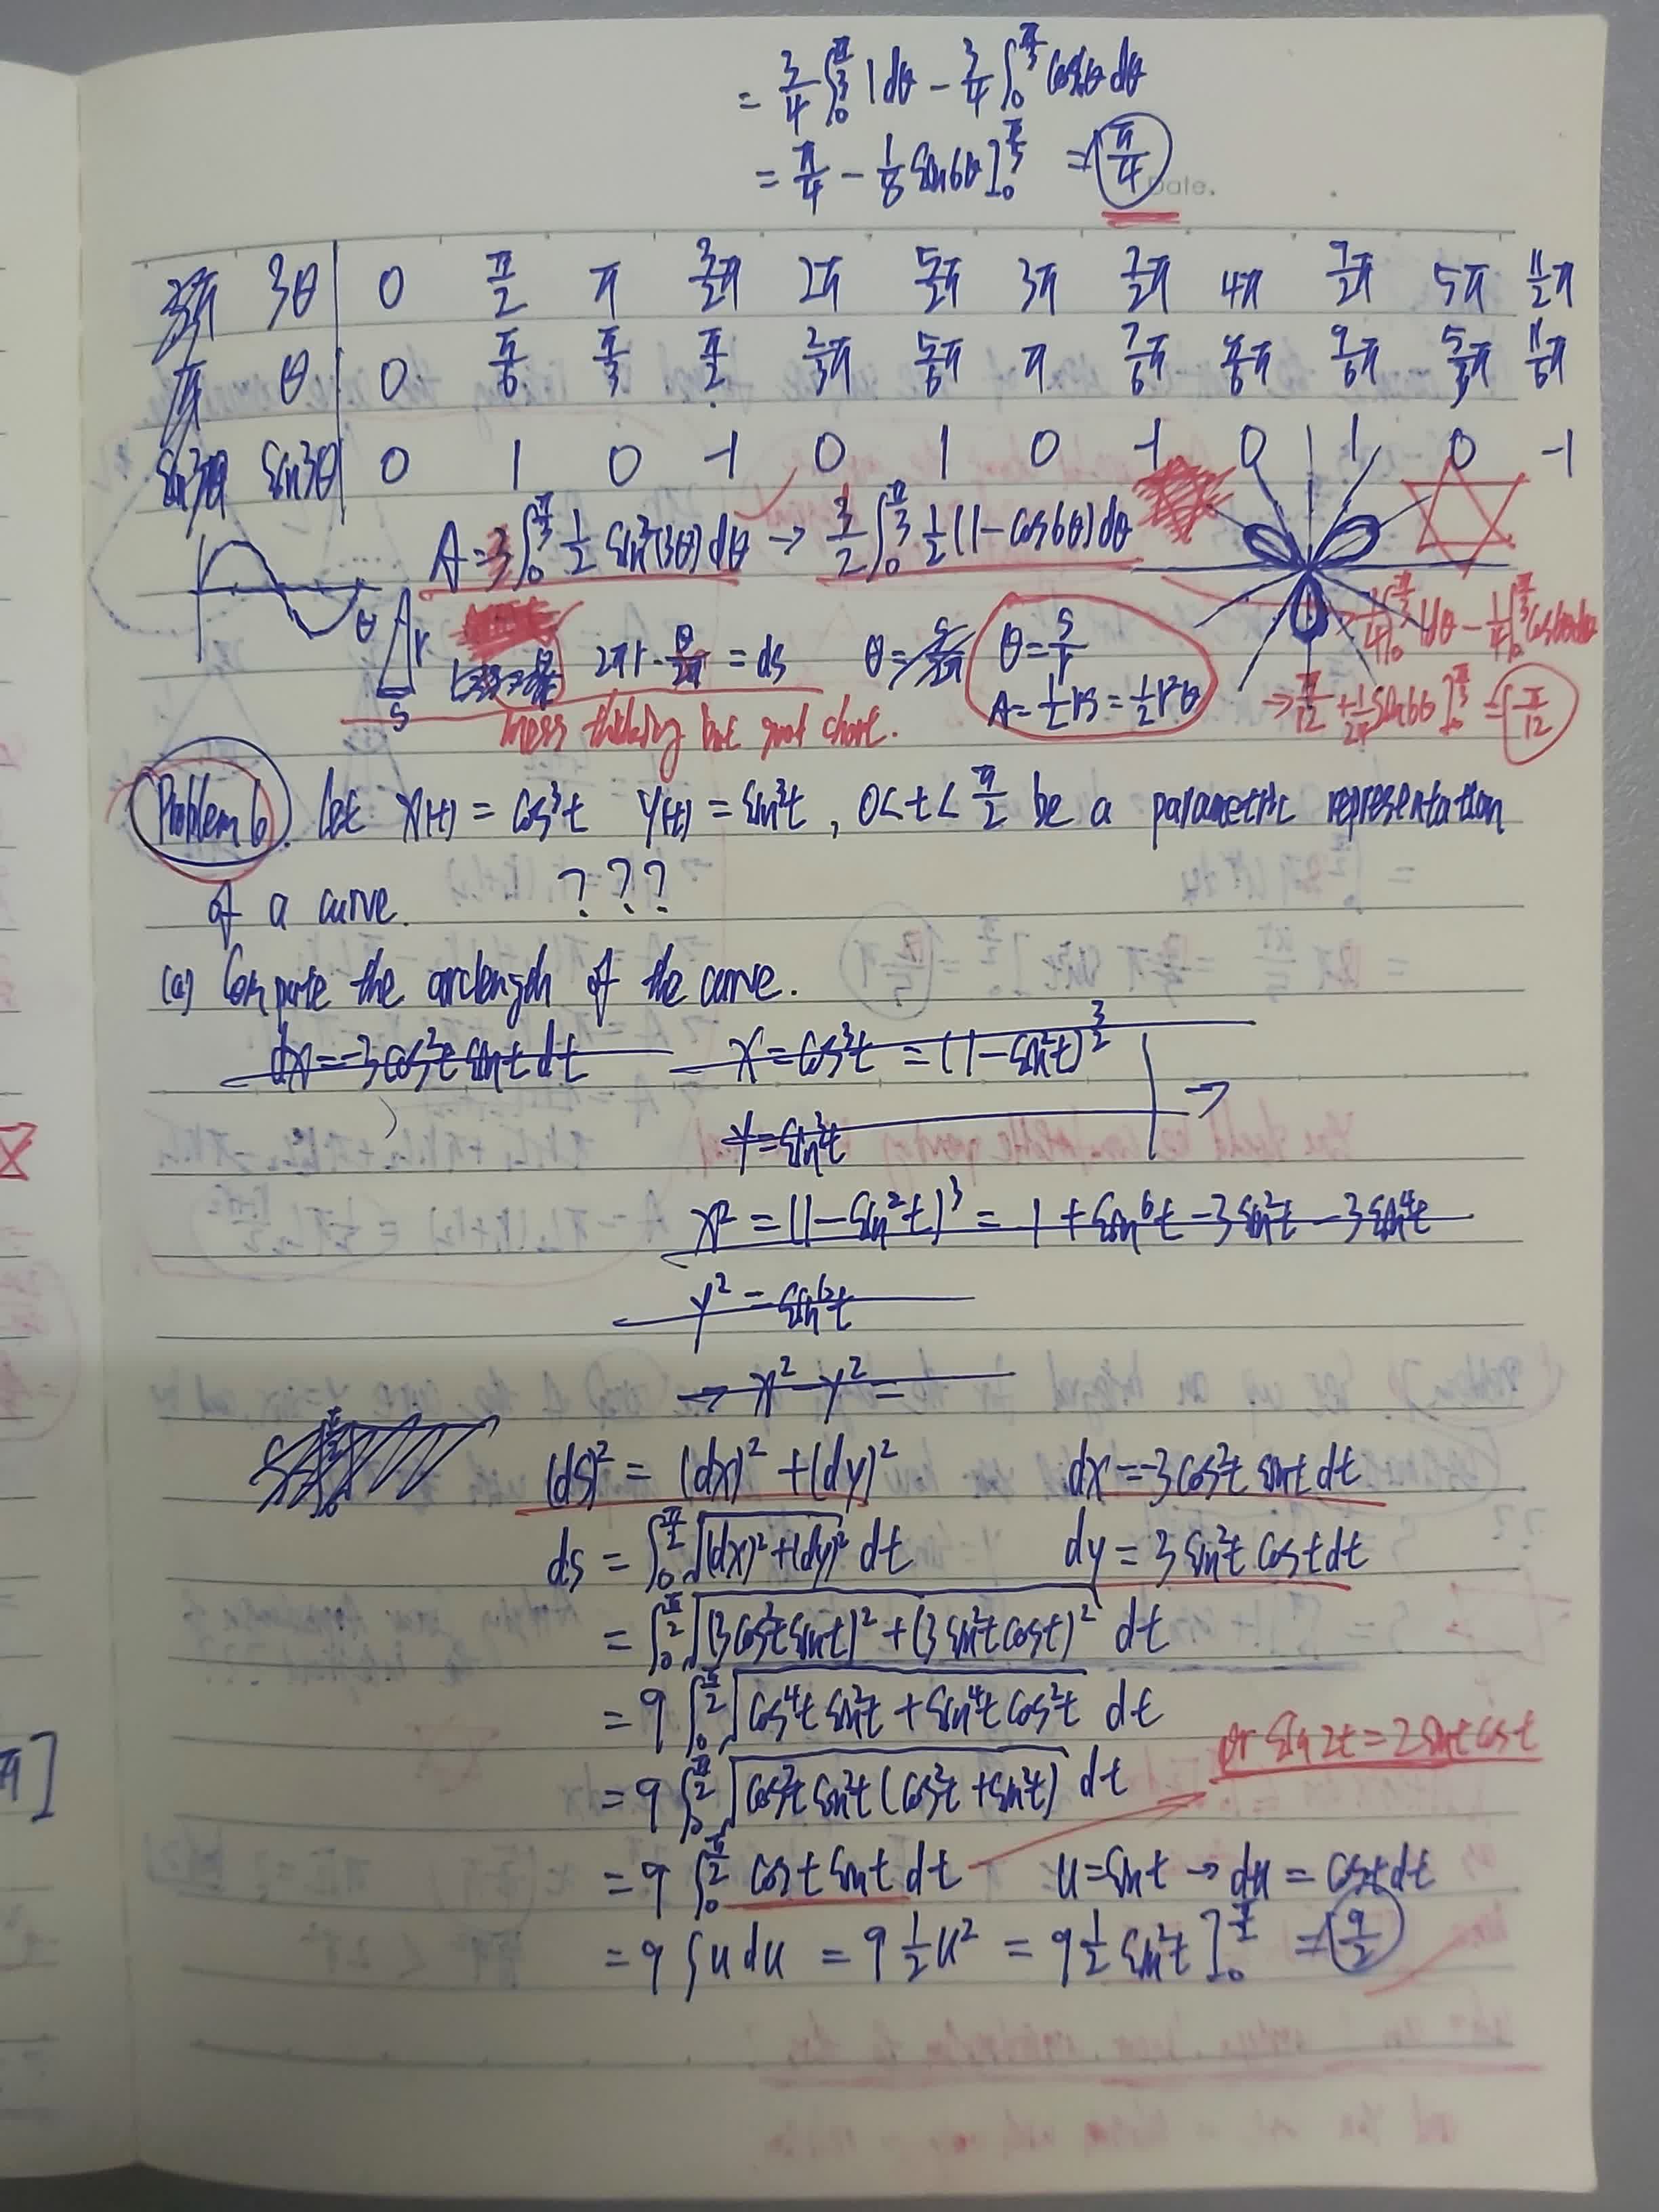 = 3/4 ∫₀^{π/3} 1 dθ − 3/4 ∫₀^{π/3} cos6θ dθ
= π/4 − 1/8 sin6θ ]₀^{π/3} = π/4
Date.
3θ 0 π/2 π 3/2π 2π 5/2π 3π 7/2π 4π 9/2π 5π 11/2π
θ 0 π/6 π/3 π/2 2/3π 5/6π π 7/6π 8/6π 9/6π 5/3π 11/6π
sin3θ 0 1 0 -1 0 1 0 -1 0 1 0 -1
A = 3∫₀^{π/3} 1/2 sin²(3θ) dθ → 3/2 ∫₀^{π/3} 1/2 (1 − cos6θ) dθ
1/4 ∫₀^{π/3} 1dθ − 1/4 ∫₀^{π/3} cos6θdθ
θ r s 2πr · θ/2π = ds θ = s/2π θ = s/r
A = 1/2 rs = 1/2 r²θ → π/12 + 1/24 sin6θ ]₀^{π/3} = π/12
mess thinking but good chart.
Problem 6. let x(t) = cos³t y(t) = sin³t, 0 < t < π/2 be a parametric representation
of a curve. ? ? ?
(a) Compute the arclength of the curve.
dx = −3cos²t sint dt x = cos³t = (1 − sin²t)^{3/2}
y = sin³t →
x² = (1 − sin²t)³ = 1 + sin⁶t − 3sin²t − 3sin⁴t
y² = sin⁶t
→ x² − y² =
(ds)² = (dx)² + (dy)² dx = −3cos²t sint dt
ds = ∫₀^{π/2} √((dx)² + (dy)²) dt dy = 3 sin²t cost dt
= ∫₀^{π/2} √((3cos²t sint)² + (3sin²t cost)²) dt
= 9 ∫₀^{π/2} √(cos⁴t sin²t + sin⁴t cos²t) dt
or sin2t = 2sint cost
= 9 ∫₀^{π/2} √(cos²t sin²t (cos²t + sin²t)) dt
= 9 ∫₀^{π/2} cost sint dt u = sint → du = cost dt
= 9 ∫ u du = 9 1/2 u² = 9 1/2 sin²t ]₀^{π/2} = 9/2